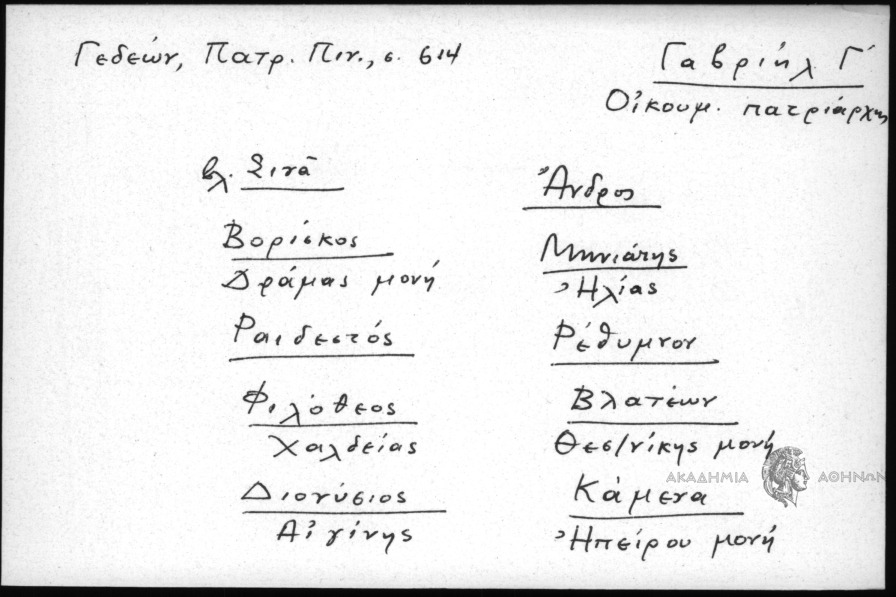 Γεδεών, Πατρ. Πιν., σ. 614
Γαβριήλ Γ΄
Οἰκουμ. πατριάρχης
βλ. Σινᾶ
Βορίσκος
Δράμας μονή
Ραιδεστός
Φιλόθεος
Χαλδείας
Διονύσιος
Αἰγίνης
Ἄνδρος
Μηνιάτης
Ἠλίας
Ρέθυμνον
Βλατέων
Θεσ/νίκης μονή
Κάμενα
Ἠπείρου μονή
ΑΚΑΔΗΜΙΑ ΑΘΗΝΩΝ